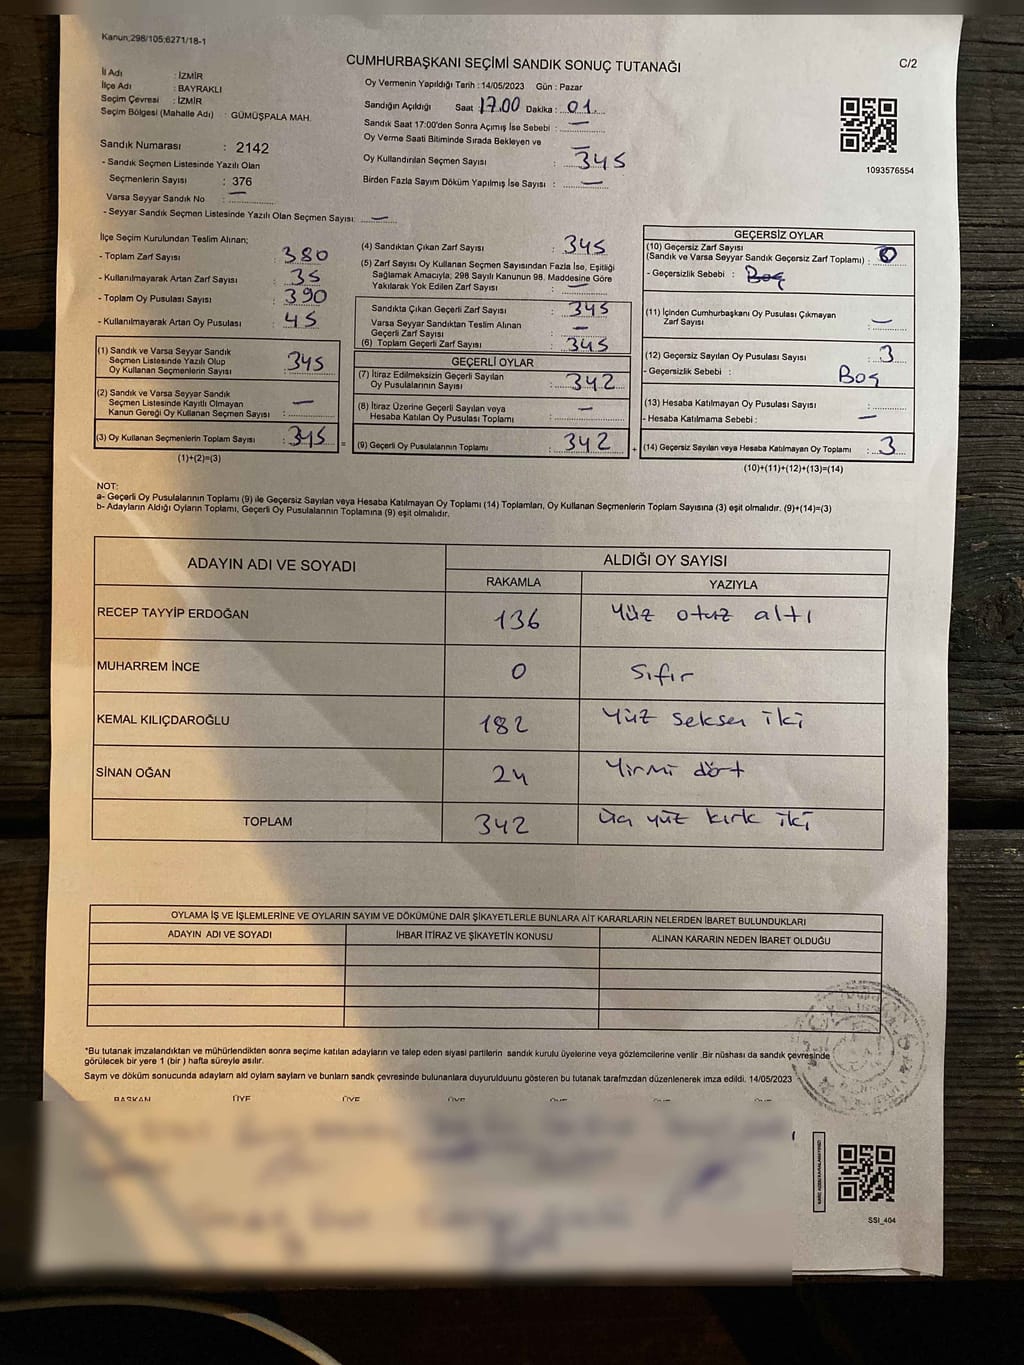 Kanun;298/105;6271/18-1
CUMHURBAŞKANI SEÇİMİ SANDIK SONUÇ TUTANAĞI
C/2
İl Adı : İZMİR
İlçe Adı : BAYRAKLI
Seçim Çevresi : İZMİR
Seçim Bölgesi (Mahalle Adı) : GÜMÜŞPALA MAH.
Sandık Numarası : 2142
- Sandık Seçmen Listesinde Yazılı Olan
Seçmenlerin Sayısı : 376
Varsa Seyyar Sandık No : —
- Seyyar Sandık Seçmen Listesinde Yazılı Olan Seçmen Sayısı: —
Oy Vermenin Yapıldığı Tarih : 14/05/2023 Gün : Pazar
Sandığın Açıldığı Saat 17.00 Dakika : 01
Sandık Saat 17:00'den Sonra Açımış İse Sebebi : —
Oy Verme Saati Bitiminde Sırada Bekleyen ve —
Oy Kullandırılan Seçmen Sayısı : 345
Birden Fazla Sayım Döküm Yapılmış İse Sayısı : —
1093576554
İlçe Seçim Kurulundan Teslim Alınan;
- Toplam Zarf Sayısı : 380
- Kullanılmayarak Artan Zarf Sayısı : 35
- Toplam Oy Pusulası Sayısı : 390
- Kullanılmayarak Artan Oy Pusulası : 45
(1) Sandık ve Varsa Seyyar Sandık
Seçmen Listesinde Yazılı Olup
Oy Kullanan Seçmenlerin Sayısı : 345
(2) Sandık ve Varsa Seyyar Sandık
Seçmen Listesinde Kayıtlı Olmayan
Kanun Gereği Oy Kullanan Seçmen Sayısı : —
(3) Oy Kullanan Seçmenlerin Toplam Sayısı : 345 =
(1)+(2)=(3)
(4) Sandıktan Çıkan Zarf Sayısı : 345
(5) Zarf Sayısı Oy Kullanan Seçmen Sayısından Fazla İse, Eşitliği
Sağlamak Amacıyla; 298 Sayılı Kanunun 98. Maddesine Göre
Yakılarak Yok Edilen Zarf Sayısı : —
Sandıkta Çıkan Geçerli Zarf Sayısı : 345
Varsa Seyyar Sandıktan Teslim Alınan
Geçerli Zarf Sayısı : —
(6) Toplam Geçerli Zarf Sayısı : 345
GEÇERLİ OYLAR
(7) İtiraz Edilmeksizin Geçerli Sayılan
Oy Pusulalarının Sayısı : 342
(8) İtiraz Üzerine Geçerli Sayılan veya
Hesaba Katılan Oy Pusulası Toplamı : —
(9) Geçerli Oy Pusulalarının Toplamı : 342 +
GEÇERSİZ OYLAR
(10) Geçersiz Zarf Sayısı
(Sandık ve Varsa Seyyar Sandık Geçersiz Zarf Toplamı) : 0
- Geçersizlik Sebebi : Boş
(11) İçinden Cumhurbaşkanı Oy Pusulası Çıkmayan
Zarf Sayısı : —
(12) Geçersiz Sayılan Oy Pusulası Sayısı : 3
- Geçersizlik Sebebi : Boş
(13) Hesaba Katılmayan Oy Pusulası Sayısı :
- Hesaba Katılmama Sebebi : —
(14) Geçersiz Sayılan veya Hesaba Katılmayan Oy Toplamı : 3
(10)+(11)+(12)+(13)=(14)
NOT:
a- Geçerli Oy Pusulalarının Toplamı (9) ile Geçersiz Sayılan veya Hesaba Katılmayan Oy Toplamı (14) Toplamları, Oy Kullanan Seçmenlerin Toplam Sayısına (3) eşit olmalıdır. (9)+(14)=(3)
b- Adayların Aldığı Oyların Toplamı, Geçerli Oy Pusulalarının Toplamına (9) eşit olmalıdır.
ADAYIN ADI VE SOYADI ALDIĞI OY SAYISI
RAKAMLA YAZIYLA
RECEP TAYYİP ERDOĞAN 136 Yüz otuz altı
MUHARREM İNCE 0 Sıfır
KEMAL KILIÇDAROĞLU 182 Yüz seksen iki
SİNAN OĞAN 24 Yirmi dört
TOPLAM 342 üç yüz kırk iki
OYLAMA İŞ VE İŞLEMLERİNE VE OYLARIN SAYIM VE DÖKÜMÜNE DAİR ŞİKAYETLERLE BUNLARA AİT KARARLARIN NELERDEN İBARET BULUNDUKLARI
ADAYIN ADI VE SOYADI İHBAR İTİRAZ VE ŞİKAYETİN KONUSU ALINAN KARARIN NEDEN İBARET OLDUĞU
*Bu tutanak imzalandıktan ve mühürlendikten sonra seçime katılan adayların ve talep eden siyasi partilerin sandık kurulu üyelerine veya gözlemcilerine verilir .Bir nüshası da sandık çevresinde
görülecek bir yere 1 (bir ) hafta süreyle asılır.
Sayım ve döküm sonucunda adayların ald oyların sayları ve bunların sandk çevresinde bulunanlara duyurulduunu gösteren bu tutanak tarafmzdan düzenlenerek imza edildi. 14/05/2023
BAŞKAN ÜYE ÜYE ÜYE ÜYE ÜYE ÜYE
SSİ_404